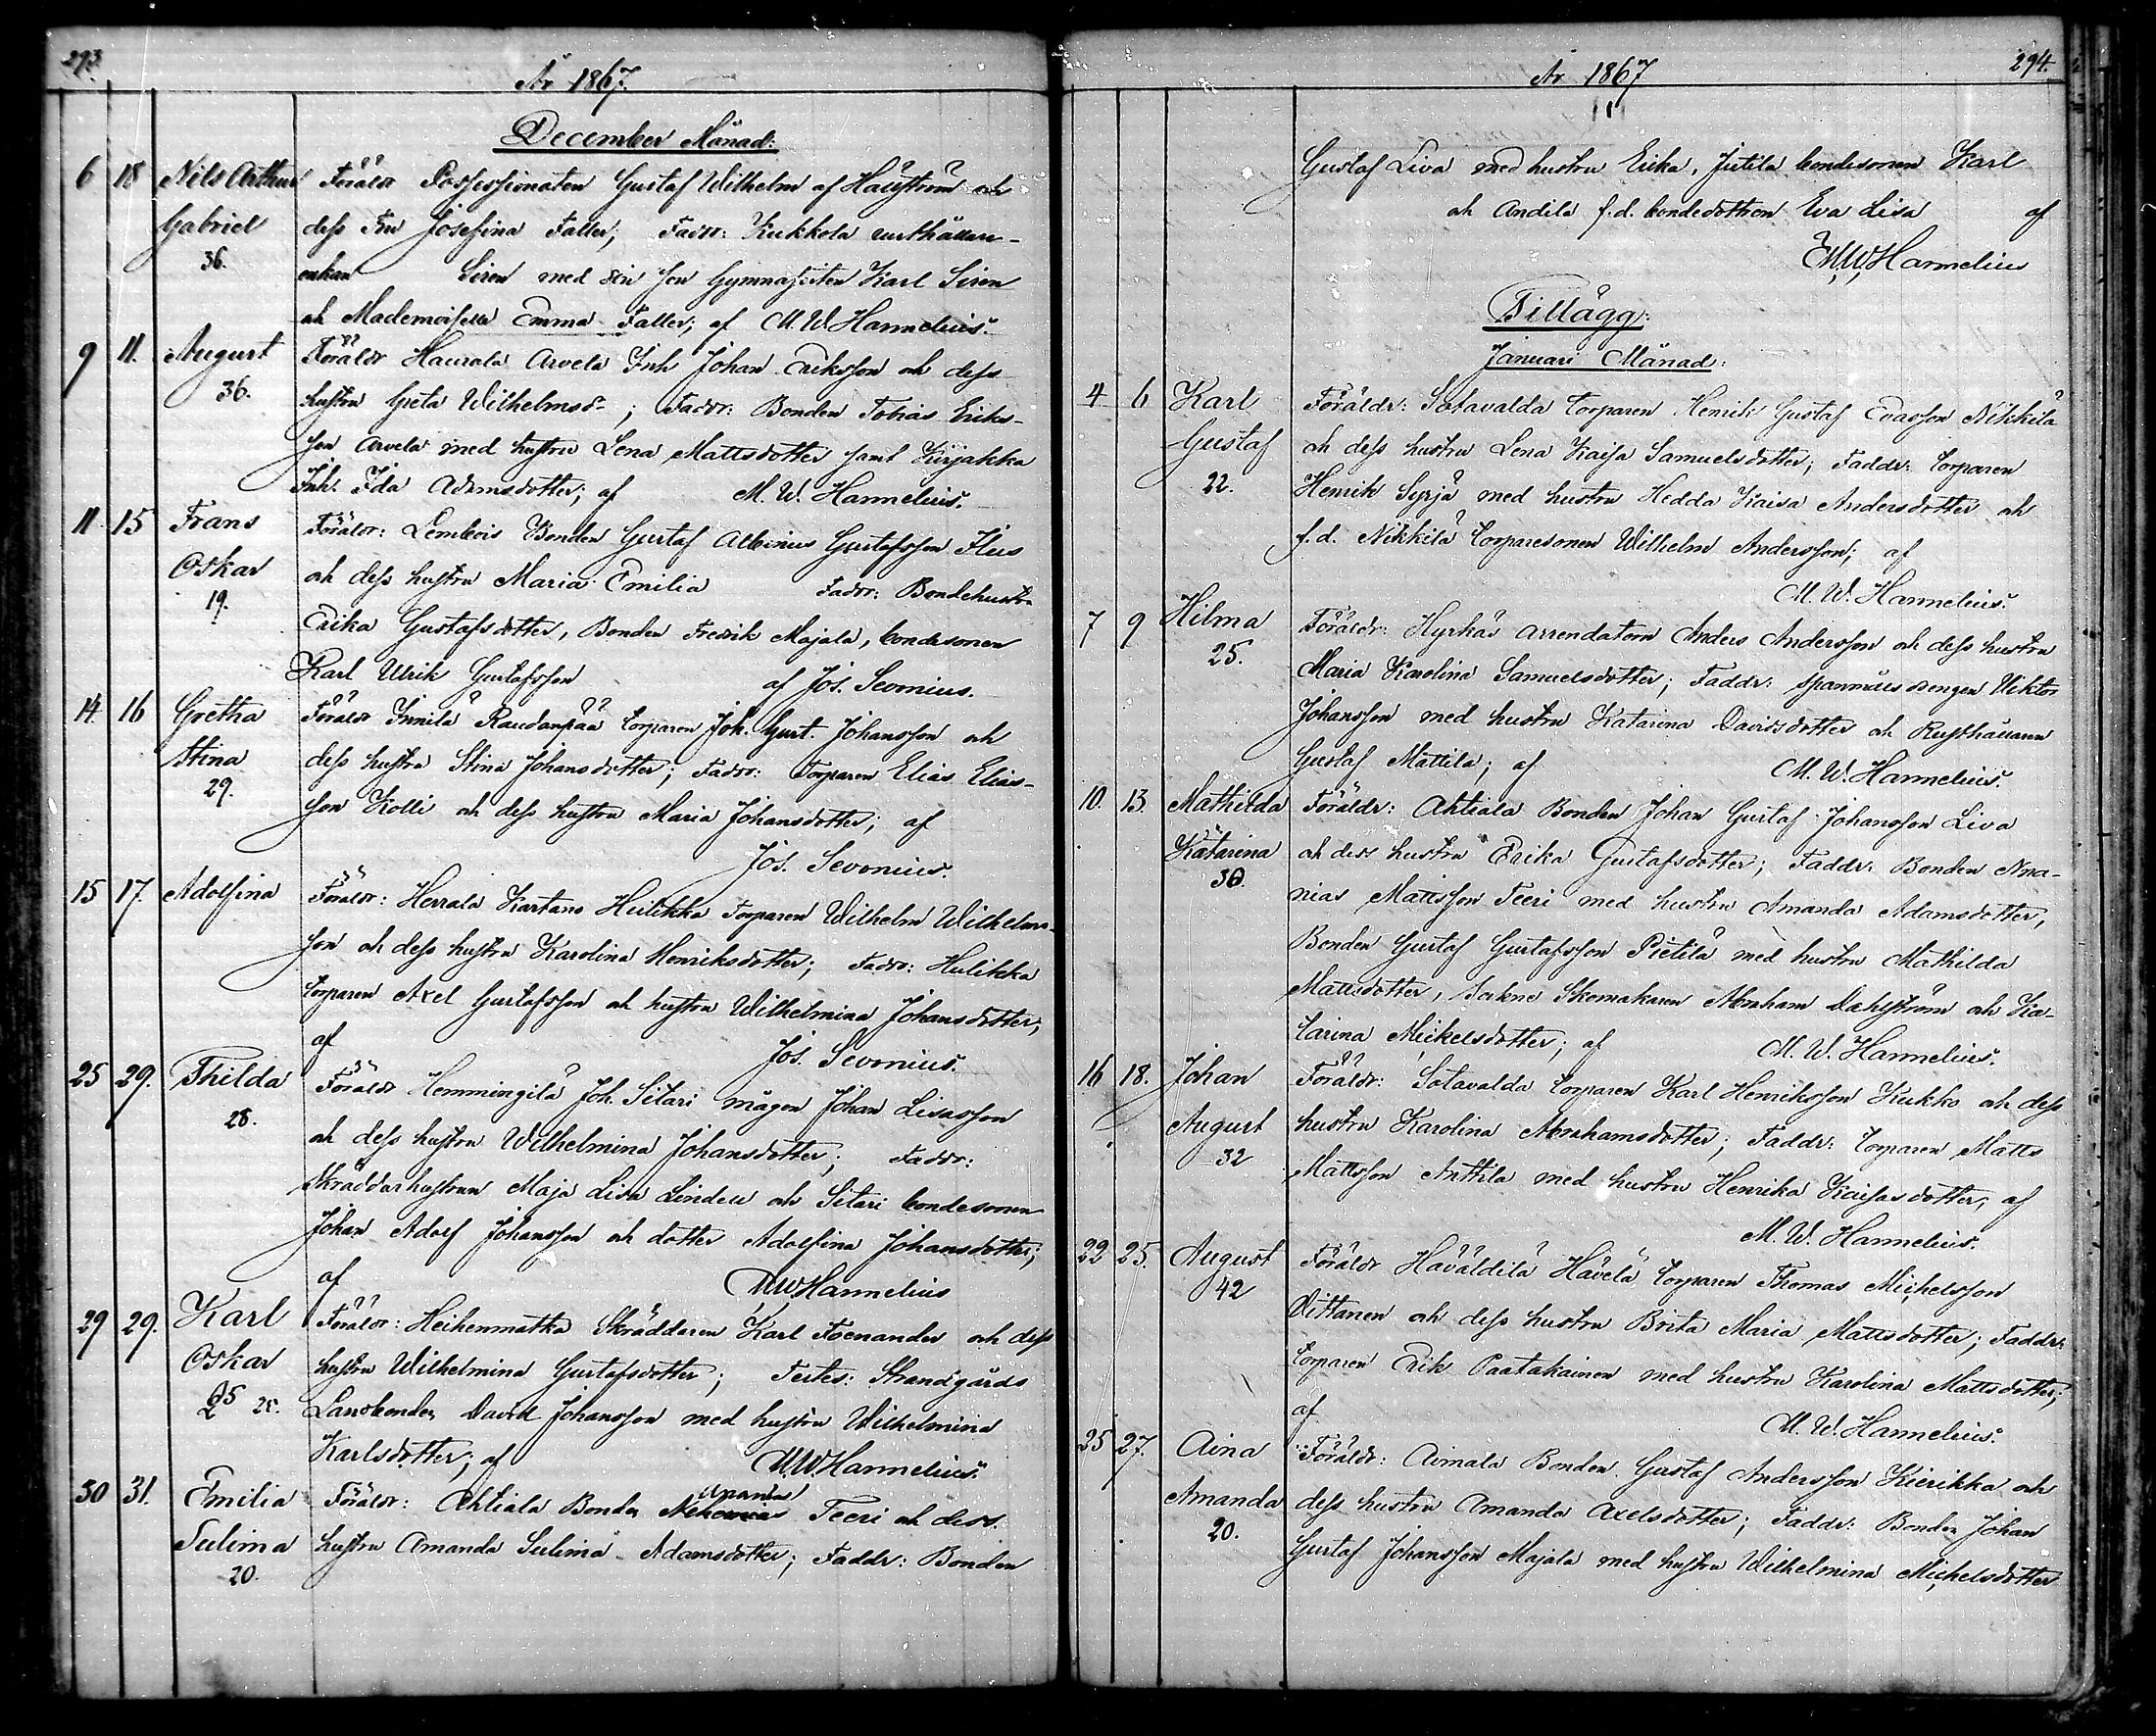 293.
År 1867.
December Månad:
6 18 Nils Arthur Föräldr Possessionaten Gustaf Wilhelm af Hällström och
Gabriel dess Fru Josefina Faller; Faddr: Kukkola rusthållare-
36. enkan Siren med sin son Gymnasisten Karl Siren
och Mademoiselle Emma Faller; af M. W. Hannelius.
9 11. August Föräldr Haurala Arvela Inh Johan Eriksson och dess
36. hustru Greta Wilhelmsd-; Faddr: Bonden Tobias Eriks-
son Arvela med hustru Lena Mattsdotter samt Kirjakka
Inh. Ida Adamsdotter; af M. W. Hannelius.
11 15 Frans Föräldr: Lembois Bonden Gustaf Albinus Gustafsson Flus
Oskar och dess hustru Maria Emilia Faddr: Bondehustr.
19. Erika Gustafsdotter, Bonden Fredrik Majala, bondesonen
Karl Ulrik Gustafsson af Jos. Sevonius.
14 16 Gretha Föräldr Innilä Raudanpää torparen Joh. Gust. Johansson och
Stina dess hustru Stina Johansdotter; Faddr: Torparen Elias Elias-
29. son Kolli och dess hustru Maria Johansdotter; af
Jos. Sevonius.
15 17. Adolfina Föräldr: Herrala Kartano Hulikka Torparen Wilhelm Wilhelms-
son och dess hustru Karolina Henriksdotter; Faddr: Hulikka
torparen Axel Gustafsson och hustru Wilhelmina Johansdotter;
af Jos. Sevonius.
25 29. Thilda Föräldr Hemmingilä Joh. Sitari mågen Johan Lisasson
28. och dess hustru Wilhelmina Johansdotter; Faddr:
Skräddarhustrun Maja Lisa Lindell och Sitari bondesonen
Johan Adolf Johansson och dotter Adolfina Johansdotter;
af M.W.Hannelius
29 29. Karl Föräldr: Heikenmatka Skräddaren Karl Foenander och dess
Oskar hustru Wilhelmina Gustafsdotter; Testes: Strandgårds
25. Landbonden David Johansson med hustru Wilhelmina
Karlsdotter; af M.W.Hannelius.
Ananias
30 31. Emilia Föräldr: Ahtiala Bonden Teeri och dess.
Sulima hustru Amanda Sulima Adamsdotter; Faddr: Bonden
20.
År 1867
294.
Gustaf Liva med hustru Erika, Jutila bondesonen Karl
och Andila f.d. bondedottren Eva Lisa af
M.W.Hannelius
Tillägg:
Januari Månad:
4 6 Karl Föräldr: Sotavalda torparen Henrik Gustaf Evasson Nikkilä
Gustaf och dess hustru Lena Kaisa Samuelsdotter; Faddr: torparen
22. Henrik Syrjä med hustru Hedda Kaisa Andersdotter och
f.d. Nikkilä torparesonen Wilhelm Andersson; af
M. W. Hannelius.
7 9 Hilma Föräldr: Hyrkäs arrendatorn Anders Andersson och dess hustru
25. Maria Karolina Samuelsdotter; Faddr: spannmålsdrengen Viktor
Johansson med hustru Katarina Davidsdotter och Rusthållaren
Gustaf Mattila; af M. W. Hannelius.
10. 13. Mathilda Föräldr: Ahtiala Bonden Johan Gustaf Johansson Liva
Katarina och dess hustru Erika Gustafsdotter; Faddr: Bonden Ana-
30. nias Mattsson Teeri med hustru Amanda Adamsdotter,
Bonden Gustaf Gustafsson Pietilä med hustru Mathilda
Mattsdotter, Sockne Skomakaren Abraham Dahlström och Ka-
tarina Mickelsdotter; af M. W. Hannelius.
16 18. Johan Föräldr: Sotavalda torparen Karl Henriksson Kukko och dess
August hustru Karolina Abrahamsdotter; Faddr: torparen Matts
32 Mattsson Anttila med hustru Henrika Kaisasdotter; af
M. W. Hannelius.
22 25. August Föräldr Haväldilä Hävelä torparen Thomas Michelsson
42 Vittanen och dess hustru Brita Maria Mattsdotter; Faddr:
torparen Erik Paatakainen med hustru Karolina Mattsdotter;
af M. W. Hannelius.
25 27. Aina Föräldr: Aimala Bonden Gustaf Andersson Kierikka och
Amanda dess hustru Amanda Axelsdotter; Faddr: Bonden Johan
20. Gustaf Johansson Majala med hustru Wilhelmina Michelsdotter